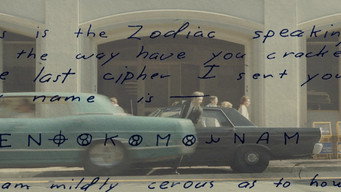 s is the Zodiac speakin
the way have you cracke
e last cipher I sent you
name is ——
E N ⌖ ⊗ K ⊗ M ⊗ N A M
am mildly cerous as to how